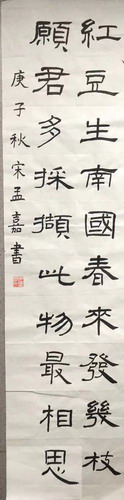 紅豆生南國春來發幾枝
願君多採擷此物最相思
庚子秋宋孟嘉書